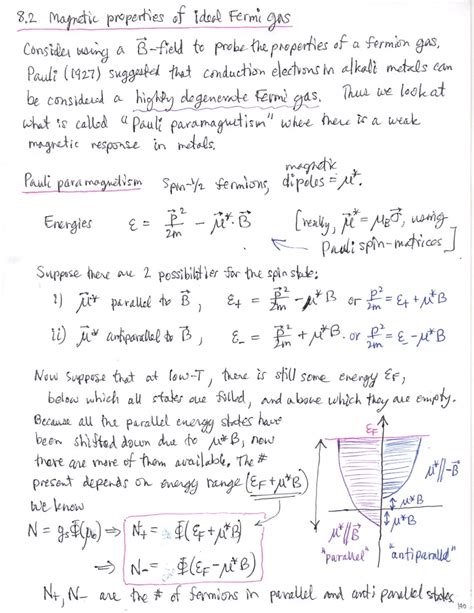 8.2 Magnetic properties of ideal Fermi gas
Consider using a B⃗-field to probe the properties of a fermion gas.
Pauli (1927) suggested that conduction electrons in alkali metals can
be considered a highly degenerate Fermi gas. Thus we look at
what is called "Pauli paramagnetism" where there is a weak
magnetic response in metals.
Pauli paramagnetism spin-1/2 fermions, magnetic dipoles = μ*.
Energies ε = p⃗²/2m - μ⃗*·B⃗ [really, μ⃗* = μ_B σ⃗, using
Pauli spin-matrices]
Suppose there are 2 possibilities for the spin state:
i) μ⃗* parallel to B⃗, ε₊ = p⃗²/2m - μ*B or p²/2m = ε₊ + μ*B
ii) μ⃗* antiparallel to B⃗, ε₋ = p⃗²/2m + μ*B. or p²/2m = ε₋ - μ*B
Now suppose that at low-T, there is still some energy ε_F,
below which all states are filled, and above which they are empty.
Because all the parallel energy states have
been shifted down due to μ*B, now
there are more of them available. The #
present depends on energy range (ε_F + μ*B)
We know
N = g_s Φ(μ₀) ⇒ N₊ = Φ(ε_F + μ*B)
⇒ N₋ = Φ(ε_F - μ*B)
ε_F
μ*B
μ*B
μ⃗*//B⃗
"parallel"
μ⃗*//-B⃗
"antiparallel"
N₊, N₋ are the # of fermions in parallel and antiparallel states